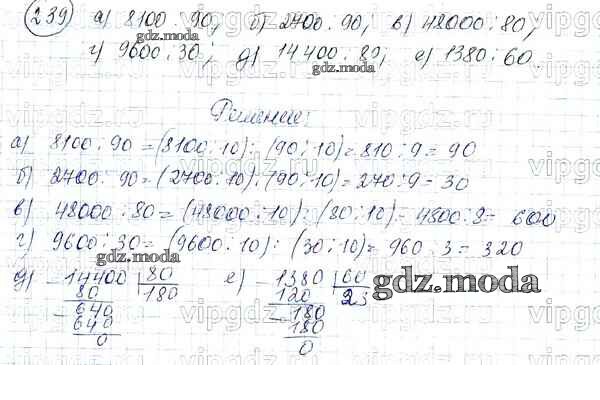 239) а) 8100 : 90, б) 2700 : 90, в) 48000 : 80,
г) 9600 : 30; д) 14400 : 80, е) 1380 : 60.
gdz.moda
Решение:
а) 8100 : 90 = (8100 : 10) : (90 : 10) = 810 : 9 = 90
б) 2700 : 90 = (2700 : 10) : (90 : 10) = 270 : 9 = 30
в) 48000 : 80 = (48000 : 10) : (80 : 10) = 4800 : 8 = 600
г) 9600 : 30 = (9600 : 10) : (30 : 10) = 960 : 3 = 320
д) 14400 | 80 е) 1380 | 60
80 180 120 23
640 180
640 180
0 0
gdz.moda